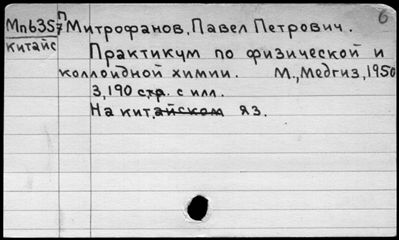 6
Мпб357 П Митрофанов, Павел Петрович.
китайс
Практикум по физической и
коллоидной химии. М., Медгиз, 1950
3,190 стр. с илл.
На китайском яз.